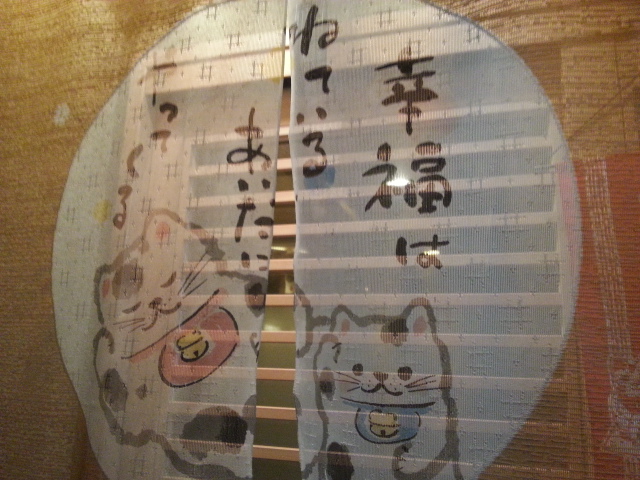 幸福は
ねている
あいだに
やってくる